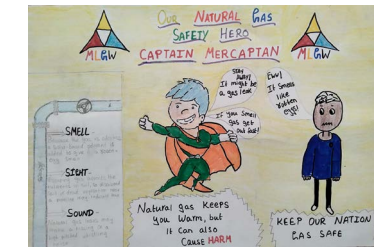 Our Natural Gas
Safety Hero
Captain Mercaptan
MLGW
MLGW
Stay
away!
It might be
a gas leak.
If you smell
gas get
out fast!
Eww!
It smells
like
rotten
eggs!
SMELL
SIGHT
SOUND
Natural gas keeps
you warm, but
it can also
cause HARM
KEEP OUR NATION
GAS SAFE